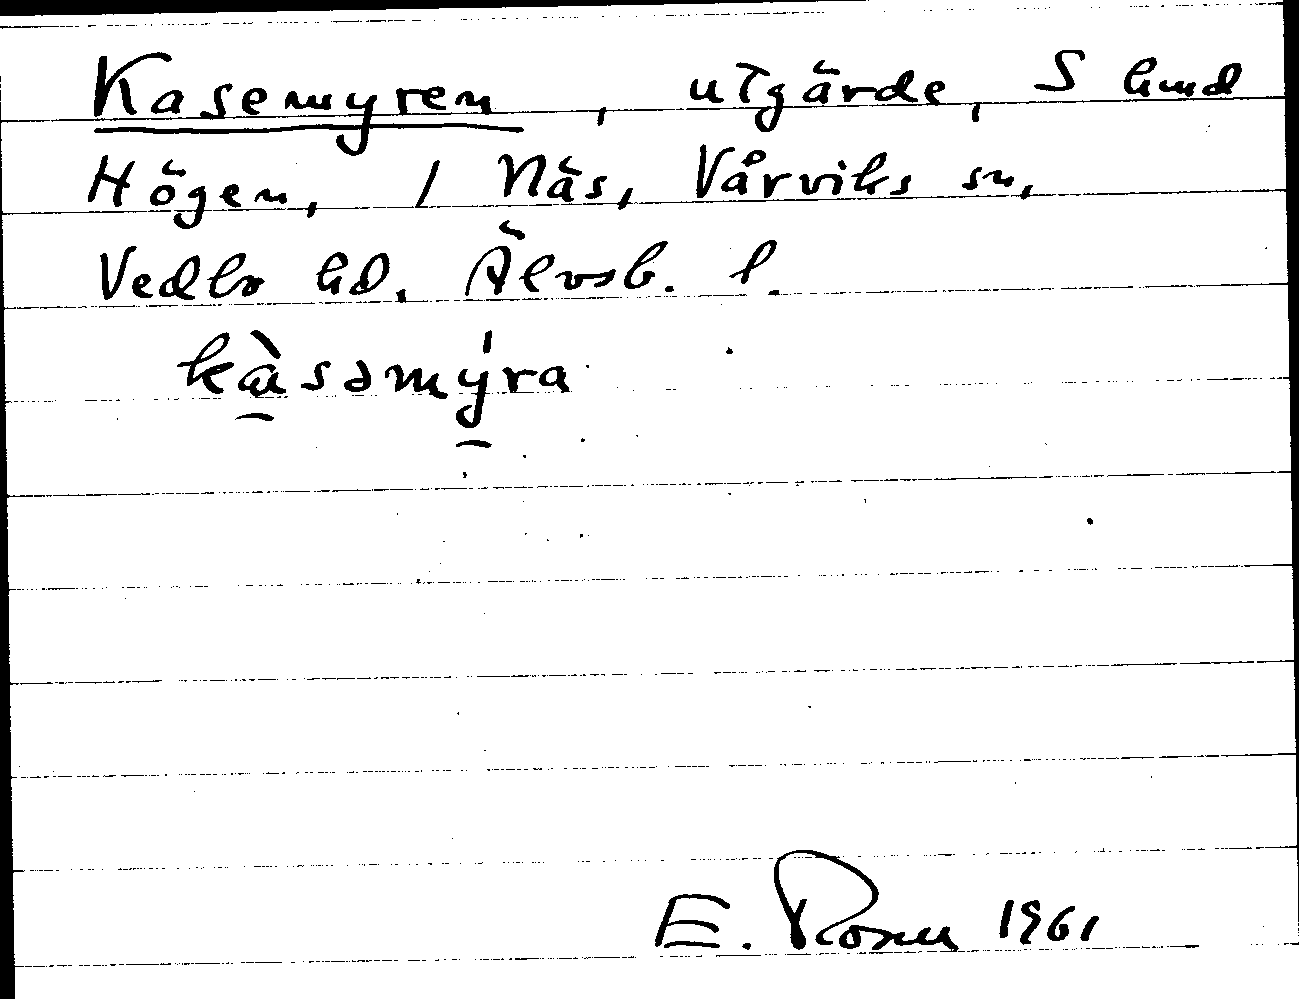 Kasemyren, utgärde, S hmd
Högen, 1 Näs, Vårviks sn,
Vedbo hd. Älvsb. l.
kàsəmýra
E. Rosen 1961